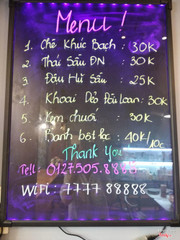 Menu !
1. Chè Khúc Bạch : 30K
2. Thái Sầu ĐN : 30K
3. Đậu Hũ Sầu : 25K
4. Khoai Dẻo Đài Loan : 30K
5. Kem chuối : 30K
6. Bánh bột lọc : 40K/10c
Thank You
Tell : 0127.505.888
WiFi : 7777 88888